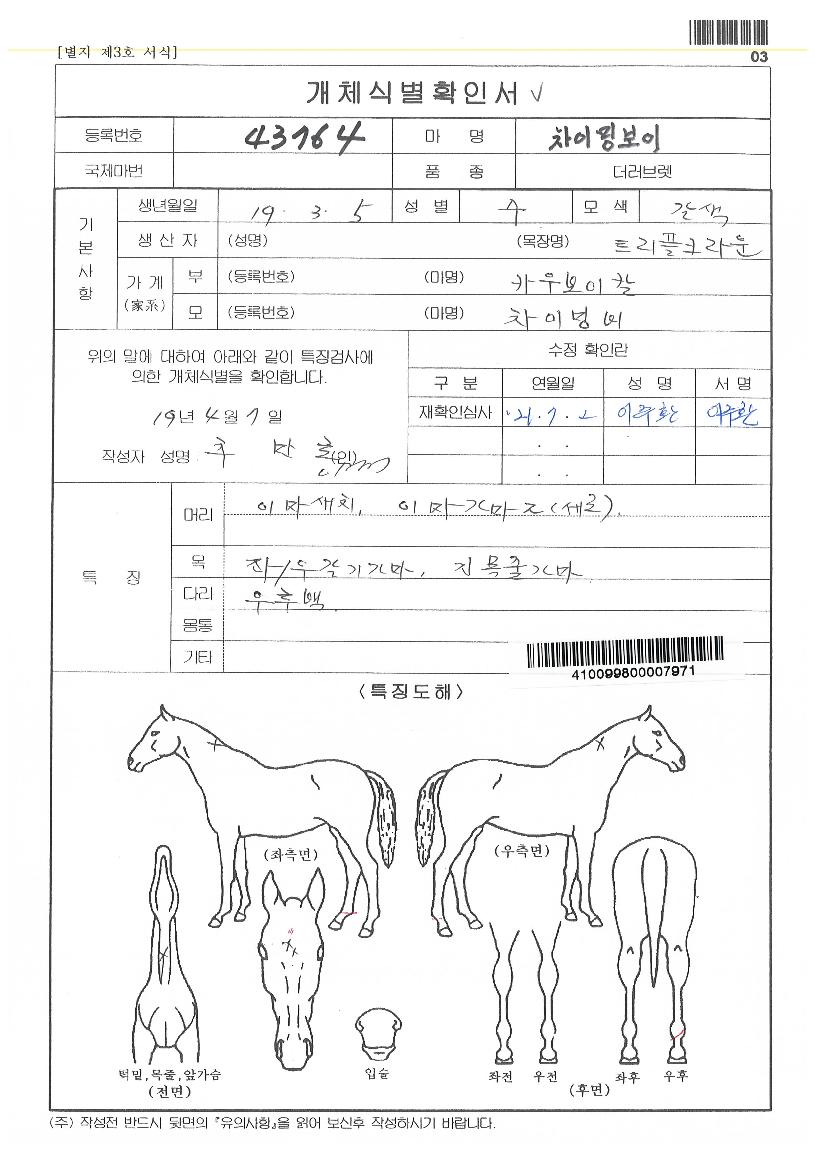 [별지 제3호 서식]
03
개체식별확인서 √
등록번호 43764 마 명 차이핑보이
국제마번 품 종 더러브렛
기본사항
생년월일 19. 3. 5 성 별 수 모 색 갈색
생 산 자 (성명) (목장명) 트리플크라운
가 계 (家系) 부 (등록번호) (마명) 카우보이칼
모 (등록번호) (마명) 차이닝비
위의 말에 대하여 아래와 같이 특징검사에
의한 개체식별을 확인합니다.
19년 4월 7일
작성자 성명 (인)
수정 확인란
구 분 연월일 성 명 서 명
재확인심사 이주환 이주환
특 징
머리 이마새치, 이마가마 (세로).
목 좌/우각기가마, 목줄가마
다리 우후백
몸통
기타
410099800007971
<특징도해>
(좌측면) (우측면)
턱밑,목줄,앞가슴 (전면)
입술
좌전 우전 좌후 우후
(후면)
(주) 작성전 반드시 뒷면의 『유의사항』을 읽어 보신후 작성하시기 바랍니다.